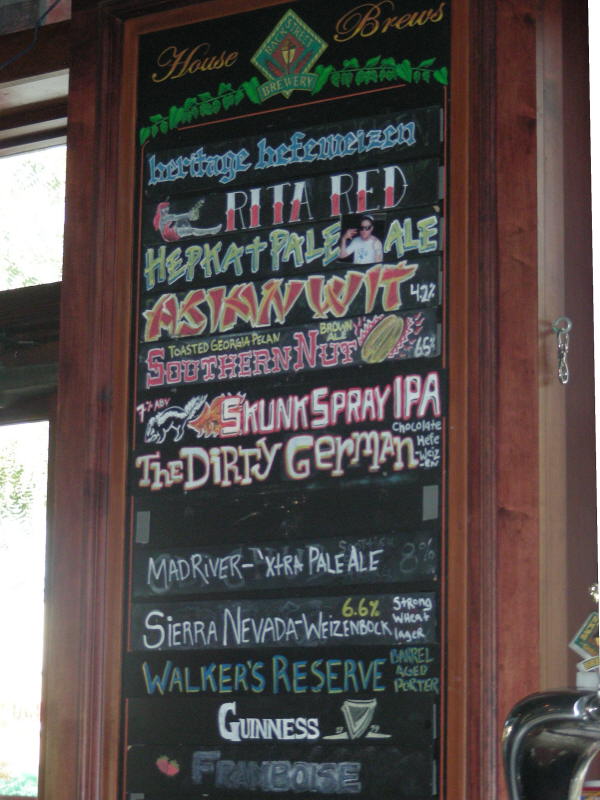 House Brews
BACK STREET
BREWERY
heritage hefeweizen
RITA RED
HEPKAT PALE ALE
ASIAN WIT 4.2%
TOASTED GEORGIA PECAN BROWN ALE
SOUTHERN NUT 6.5%
7% ABV SKUNK SPRAY IPA
THE DIRTY GERMAN
Chocolate
Hefe
-Weiz
-EN
MADRIVER-'XTRA PALE ALE 8%
SIERRA NEVADA-WEIZENBOCK 6.6%
STRONG
WHEAT
lageR
WALKER'S RESERVE
BARREL
AGED
PORTER
GUINNESS
FRAMBOISE